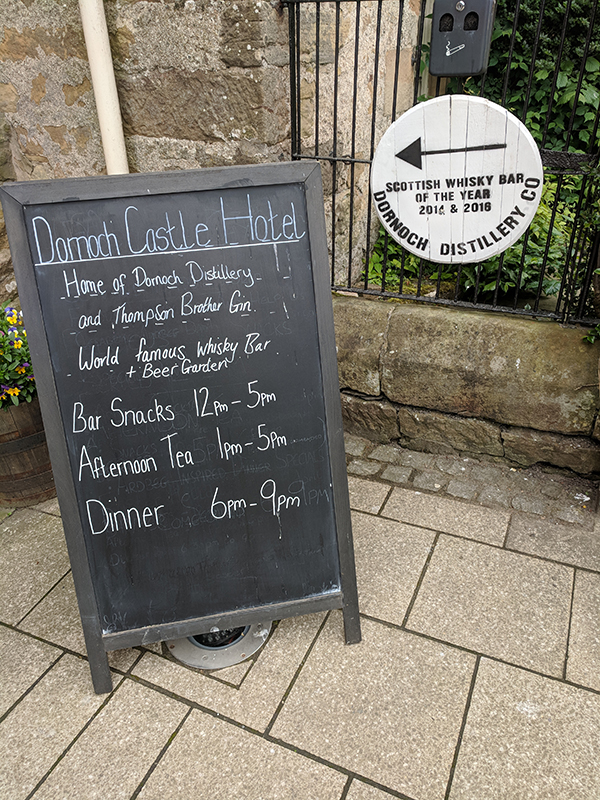 Dornoch Castle Hotel
Home of Dornoch Distillery
and Thompson Brother Gin.
World famous Whisky Bar
+ Beer Garden
Bar Snacks 12pm - 5pm
Afternoon Tea 1pm - 5pm
Dinner 6pm - 9pm
SCOTTISH WHISKY BAR
OF THE YEAR
2014 & 2016
DORNOCH DISTILLERY CO